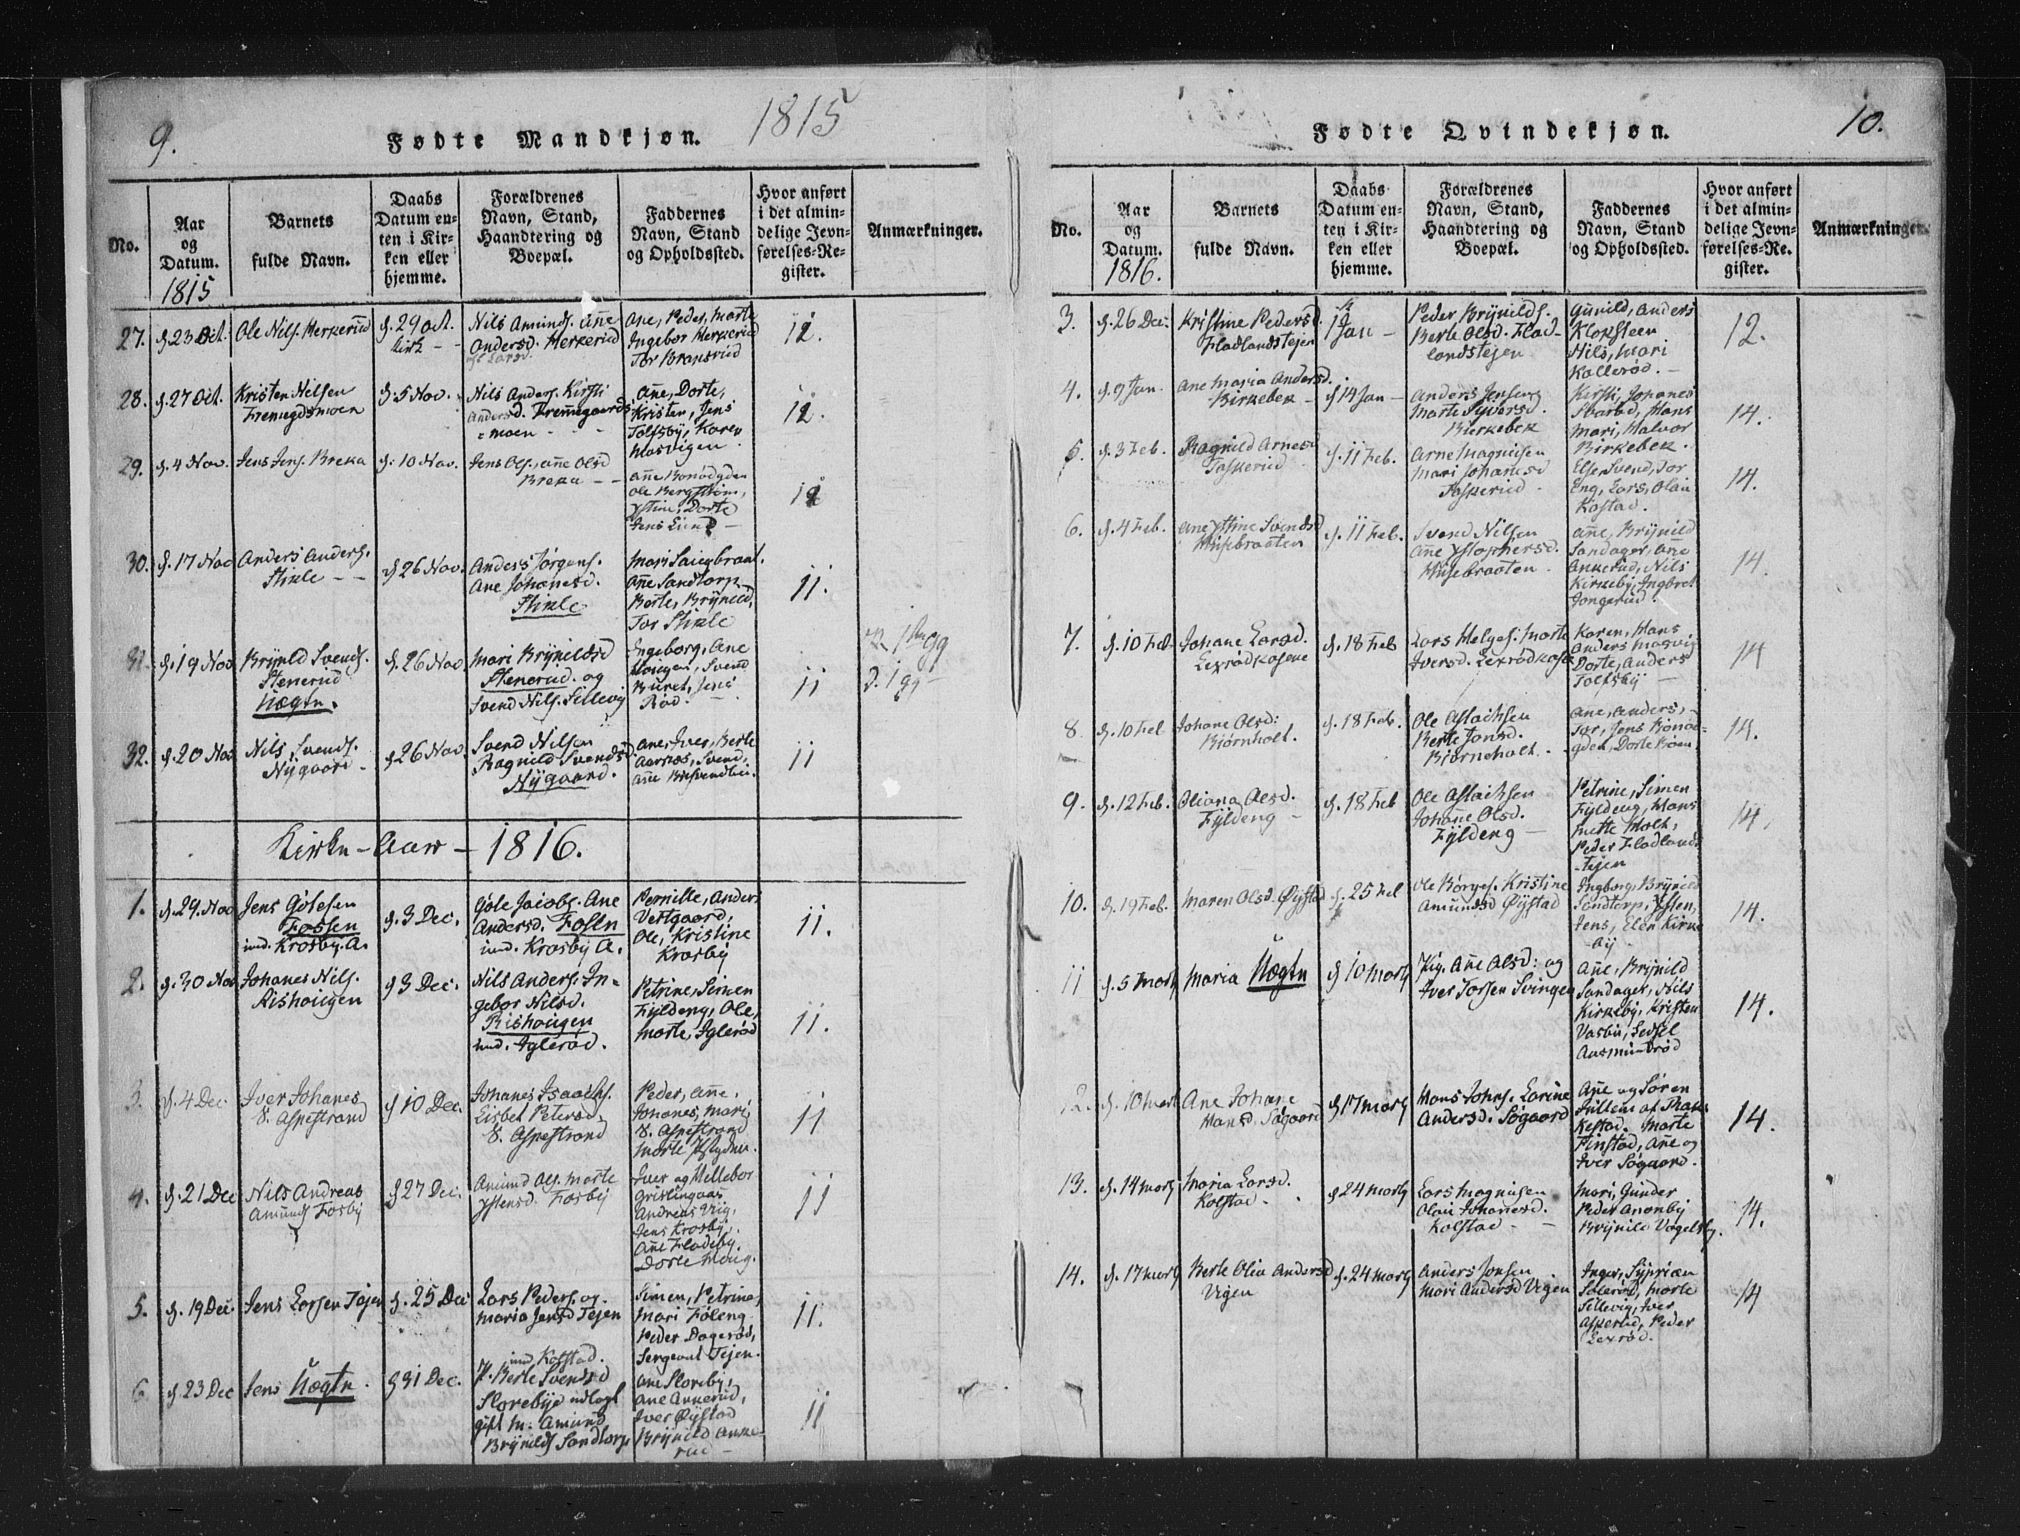 9.
Fødte Mandkjøn.
1815
No.
Aar
og
Datum.
1815
Barnets
fulde Navn.
Daabs
Datum en-
ten i Kir-
ken eller
hjemme.
Forældrenes
Navn, Stand,
Haandtering og
Boepæl.
Faddernes
Navn, Stand
og Opholdssted.
Hvor anført
i det almin-
delige Jevn-
førelses-Re-
gister.
Anmærkninger.
27.
d. 23 Oct.
Ole Nils. Herkerud
d. 29 Oct.
Kirk
Nils Amunds. Ane
Andersd. Herkerud
Ane, Peder, Marte
Ingebor Herkerud
Tor Bransrud
12.
28.
d. 27 Oct.
Kristen Nilsen
d. 5 Nov.
Nils Anders. Kirsti
Andersd.
moen
Ane, Dorte,
Kristen, Jens
Tolfsby, Karen
Masvigen
12.
29.
d. 4 Nov.
Jens Jens. Breka
d. 10 Nov.
Jens Ols. Ane Olsd
Breka
Ole Bergstrøm,
Ystine, Dorte
12
30.
d. 17 Nov
Anders Anders.
Stikle
d 26 Nov.
Anders Jørgens.
Ane Johanesd.
Stikle
Ane Sandtorp
Berte, Brynild,
Tor Stikle
11.
31.
d. 19 Nov
Brynild Svends.
Stenerud
Uægte.
d. 26 Nov.
Mari Brynildsd
Stenerud. og
Svend Nils. Sillevig
Ingeborg, Ane
Svend
Rød.
11
32.
d. 20 Nov
Nils, Svends.
Nygaard.
d 26 Nov.
Svend Nilsen
Ragnild Svendsd
Nygaard.
Ane, Iver, Berte
Svend,
11
Kirke-Aar - 1816.
1.
d. 29. Nov
Jens Gølesen
Fossen
und. Krosby. A.
d. 3 Dec.
Gøle Jacobs. Ane
Andersd. Fosen
und. Krosby A.
Pernille, Anders
Vestgaard,
Ole, Kristine
Krosby
11.
2.
d. 30 Nov
Johanes Nils.
Rishougen
d 3 Dec.
Nils Anders. In-
gebor Nilsd.
Rishougen
und. Iglerød.
Petrine, Simen
Fyldeng, Ole,
Marte, Iglerød
11.
3.
d. 4 Dec.
Iver Johanes.
S. Aspestrand
d 10 Dec.
Johanes Isaachs.
Lisbet Petersd.
S. Aspestrand
Peder, Ane,
Johanes, Mari,
S. Aspestrand
11
4.
d. 21 Dec
Nils Andreas
Amunds Fosby
d 27 Dec.
Amund Ols. Marte
Ystensd. Fosby
Iver og Hellebor
Jens Krosby,
Ane Fladeby,
11
5.
d. 19 Dec.
Jens Larsen Tejen
d. 25 Dec
Lars Peders. og
Maria Jensd Tejen
und Kolstad.
Simen, Petrine,
Mari Føleng
Peder Dagerød,
Sergeant Tejen.
11.
6
d. 23 Dec
Jens Uægte.
d 31 Dec.
P. Berte Svendsd
Slorebye udlagt
gift M. Amund
Brynilds Sandtorp
Ane Sloreby,
Ane Ankerud,
Iver Øystad
Brynild Anke-
rud
11
Fødte Qvindekjøn.
10.
No.
Aar
og
Datum.
1816.
Barnets
fulde Navn.
Daabs
Datum en-
ten i Kir-
ken eller
hjemme.
Forældrenes
Navn, Stand,
Haandtering og
Boepæl.
Faddernes
Navn, Stand
og Opholdssted.
Hvor anført
i det almin-
delige Jevn-
førelses-Re-
gister.
Anmærkninger.
3.
d. 26 Dec.
Kristine Pedersd.
Fladlandstejen
1 Jan
Peder Brynilds.
Berte Olsd. Flad-
landstejen
Gunild, Anders
Klopsteen
Nils, Mari
Kallerød.
12.
4.
d. 9 Jan.
Ane Maria Andersd.
Birkebek
d 14 Jan
Anders Jens. og
Marte Syversd.
Birkebek
Kirsti, Johanes
Mari, Halvor
Birkebek.
14.
5.
d. 3 Feb.
Ragnild Arnesd
Taskerud
d. 11 Feb.
Arne Magnusen
Mari Johanesd
Taskerud
Else, Svend, Tor
Eng, Lars, Olau
Kostad.
14.
6.
d. 4 Feb.
Ane Ystine Svendsd
Husebraaten
d. 11 Feb.
Svend Nilsen
Ane Ystophersd.
Husebraaten.
Ane, Brynild
Sandager, Ane
Ankerud, Nils
Kirkeby, Ingbret
Jongerud.
14.
7.
d. 10 Feb
Johane Larsd.
Lexrødkasene
d. 18 Feb
Lars Helges. Marte
Iversd. Lexrødkase
Karen, Hans
Anders Magvig
Dorte, Anders
Tolfsby
14
8.
d. 10 Feb
Johane Olsd.
Biørnholt.
d. 18 Feb.
Ole Aslachsen
Berte Jonsd.
Biørneholt.
Ane, Anders,
14.
9.
d. 12 Feb.
Oliana Olsd.
Fyldeng
d. 18 Feb
Ole Aslachsen
Johane Olsd.
Fyldeng
Petrine, Simen
Fyldeng, Hans
Mette Holt,
Peder Fladlands
tejen
14.
10.
d. 19 Feb.
Maren Olsd. Øystad
d. 25 Feb
Ole Børges. Kristine
Amundsd Øystad
Ingborg, Brynild
Sandtorp, Ysten,
Jens, Elen Kirke-
by
14.
11
d. 5 Marty
Maria Uægte
d 10 Marty
Pig. Ane Olsd. og
Iver Torsen Svingen
Ane, Brynild
Sandager, Nils
Kirkeby, Kristen
Vasbu, Sedsel
Aasmundrød
14.
12.
d. 10 Marty
Ane Johane
Hansd. Søgaard
d 17 Marty
Hans Johns. Larine
Andersd. Søgaard
Ane og Søren
kestad. Marte
Finstad, Ane og
Iver Søgaard.
14.
13.
d. 14 Marty
Maria Larsd.
Kolstad
d 24 Marty
Lars Magnusen
Olau Johanesd.
Kolstad
Mari, Gunder
Peder Ananby
Brynild Vogelsby.
14.
14.
d. 17 Marty
Berte Olia Andersd
Vigen
d. 24 Marty
Anders Jonsen
Mari Andersd Vigen
Inger, Syprian
Solerød, Marte
Sillevig, Iver
Asperud, Peder
Lexrød.
14